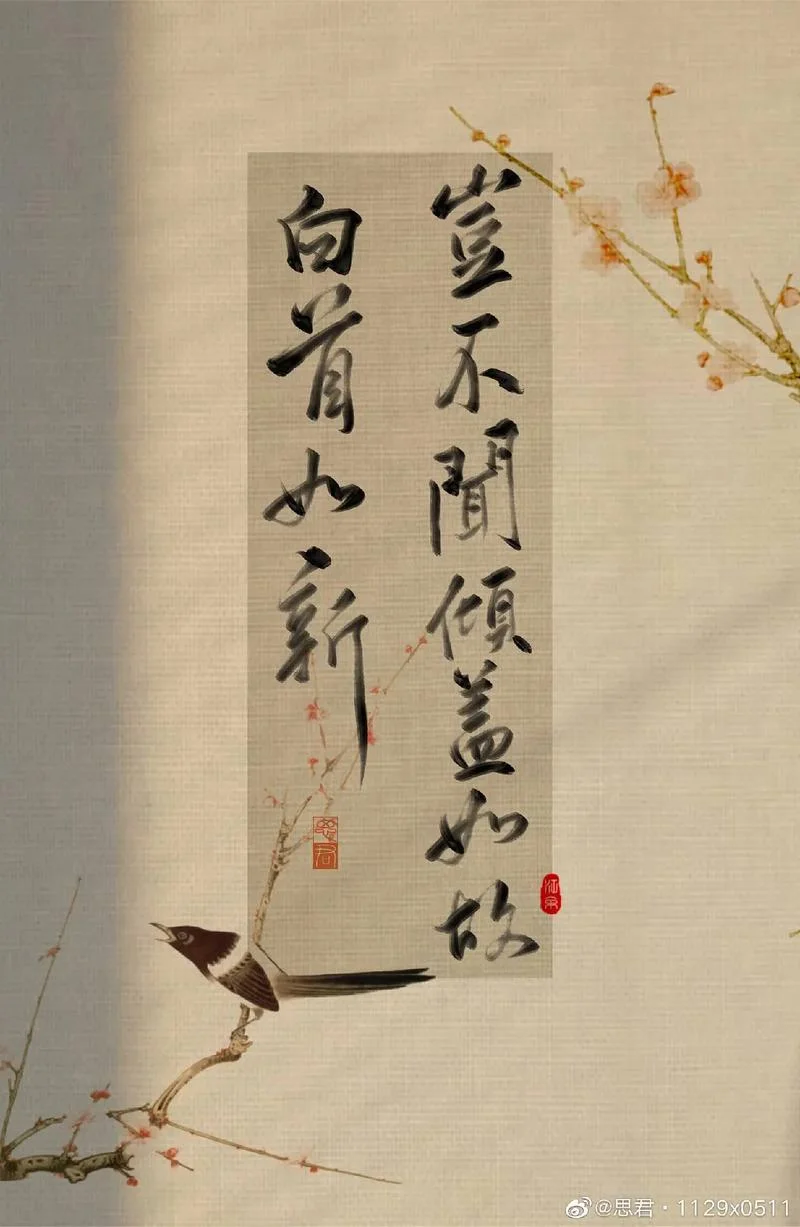 豈不聞傾蓋如故
白首如新
思君
@思君·1129x0511